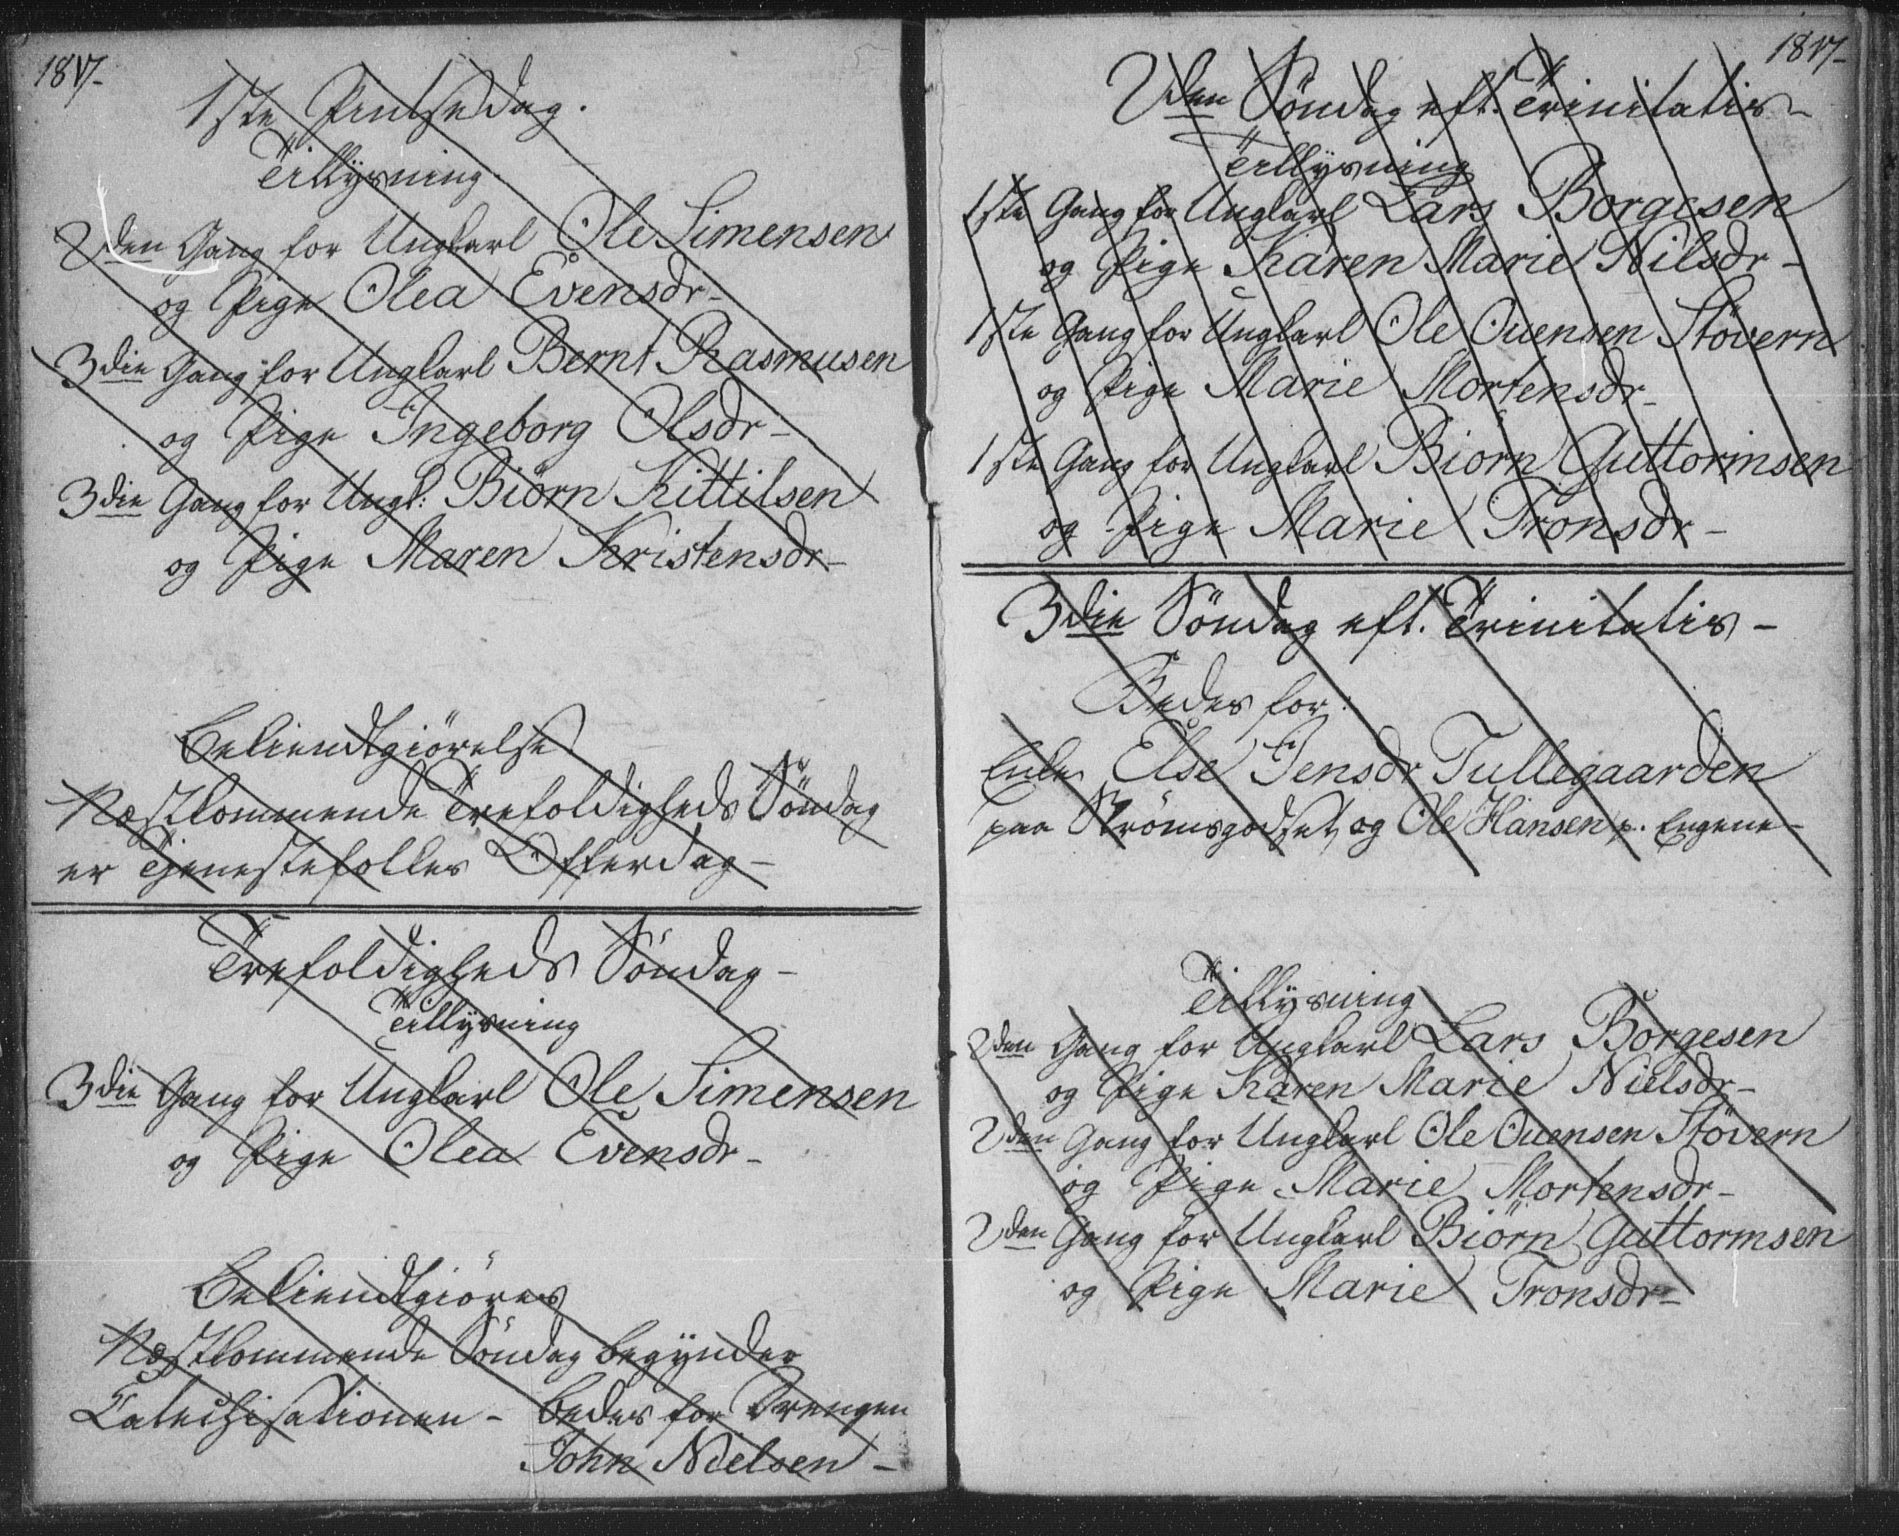 1847-
1ste Pintsedag.
Tillysning
2den Gang for Ungkarl Ole Simensen
og Pige Olea Evensdr-
3die Gang for Ungkarl Bernt Rasmusen
og Pige Ingeborg Olsdr-
3die Gang for Ungk: Biörn Kittilsen
og Pige Maren Kristensdr-
Bekiendtgiörelse
Næstkommende Trefoldigheds Söndag
er Tjenestefolkes Offerdag-
Trefoldigheds Söndag-
Tillysning
3die Gang for Ungkarl Ole Simensen
og Pige Olea Evensdr-
Bekiendtgiöres
Næstkommende Söndag begynder
Catechisationen - bedes for Drengen
John Nielsen-
1847-
2den Söndag eft. Trinitatis-
Tillysning
1ste Gang for Ungkarl Lars Borgesen
og Pige Karen Marie Nilsdr-
1ste Gang for Ungkarl Ole Ouensen Stövern
og Pige Marie Mortensdr-
1ste Gang for Ungkarl Biörn Guttormsen
og Pige Marie Tronsdr-
3die Söndag eft. Trinitatis-
Bedes for:
Enke Else Jensdr Tullegaarden
paa Strömsgodset og Ole Hansen p. Engene-
Tillysning
2den Gang for Ungkarl Lars Borgesen
og Pige Karen Marie Nielsdr-
2den Gang for Ungkarl Ole Ouensen Stövern
og Pige Marie Mortensdr-
2den Gang for Ungkarl Biörn Guttormsen
og Pige Marie Tronsdr-